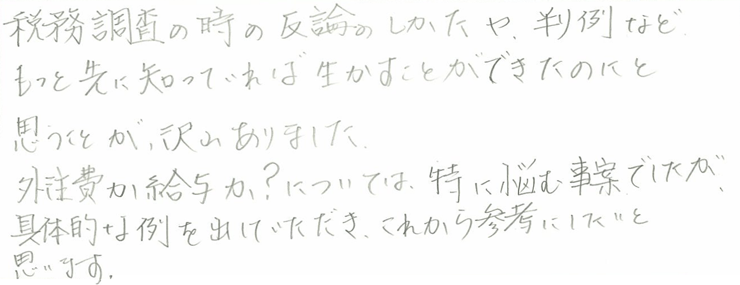 税務調査の時の反論のしかたや、判例など
もっと先に知っていれば生かすことができたのにと
思うことが、沢山ありました。
外注費か給与か?については、特に悩む事案でしたが、
具体的な例を出していただき、これから参考にしたいと
思います。